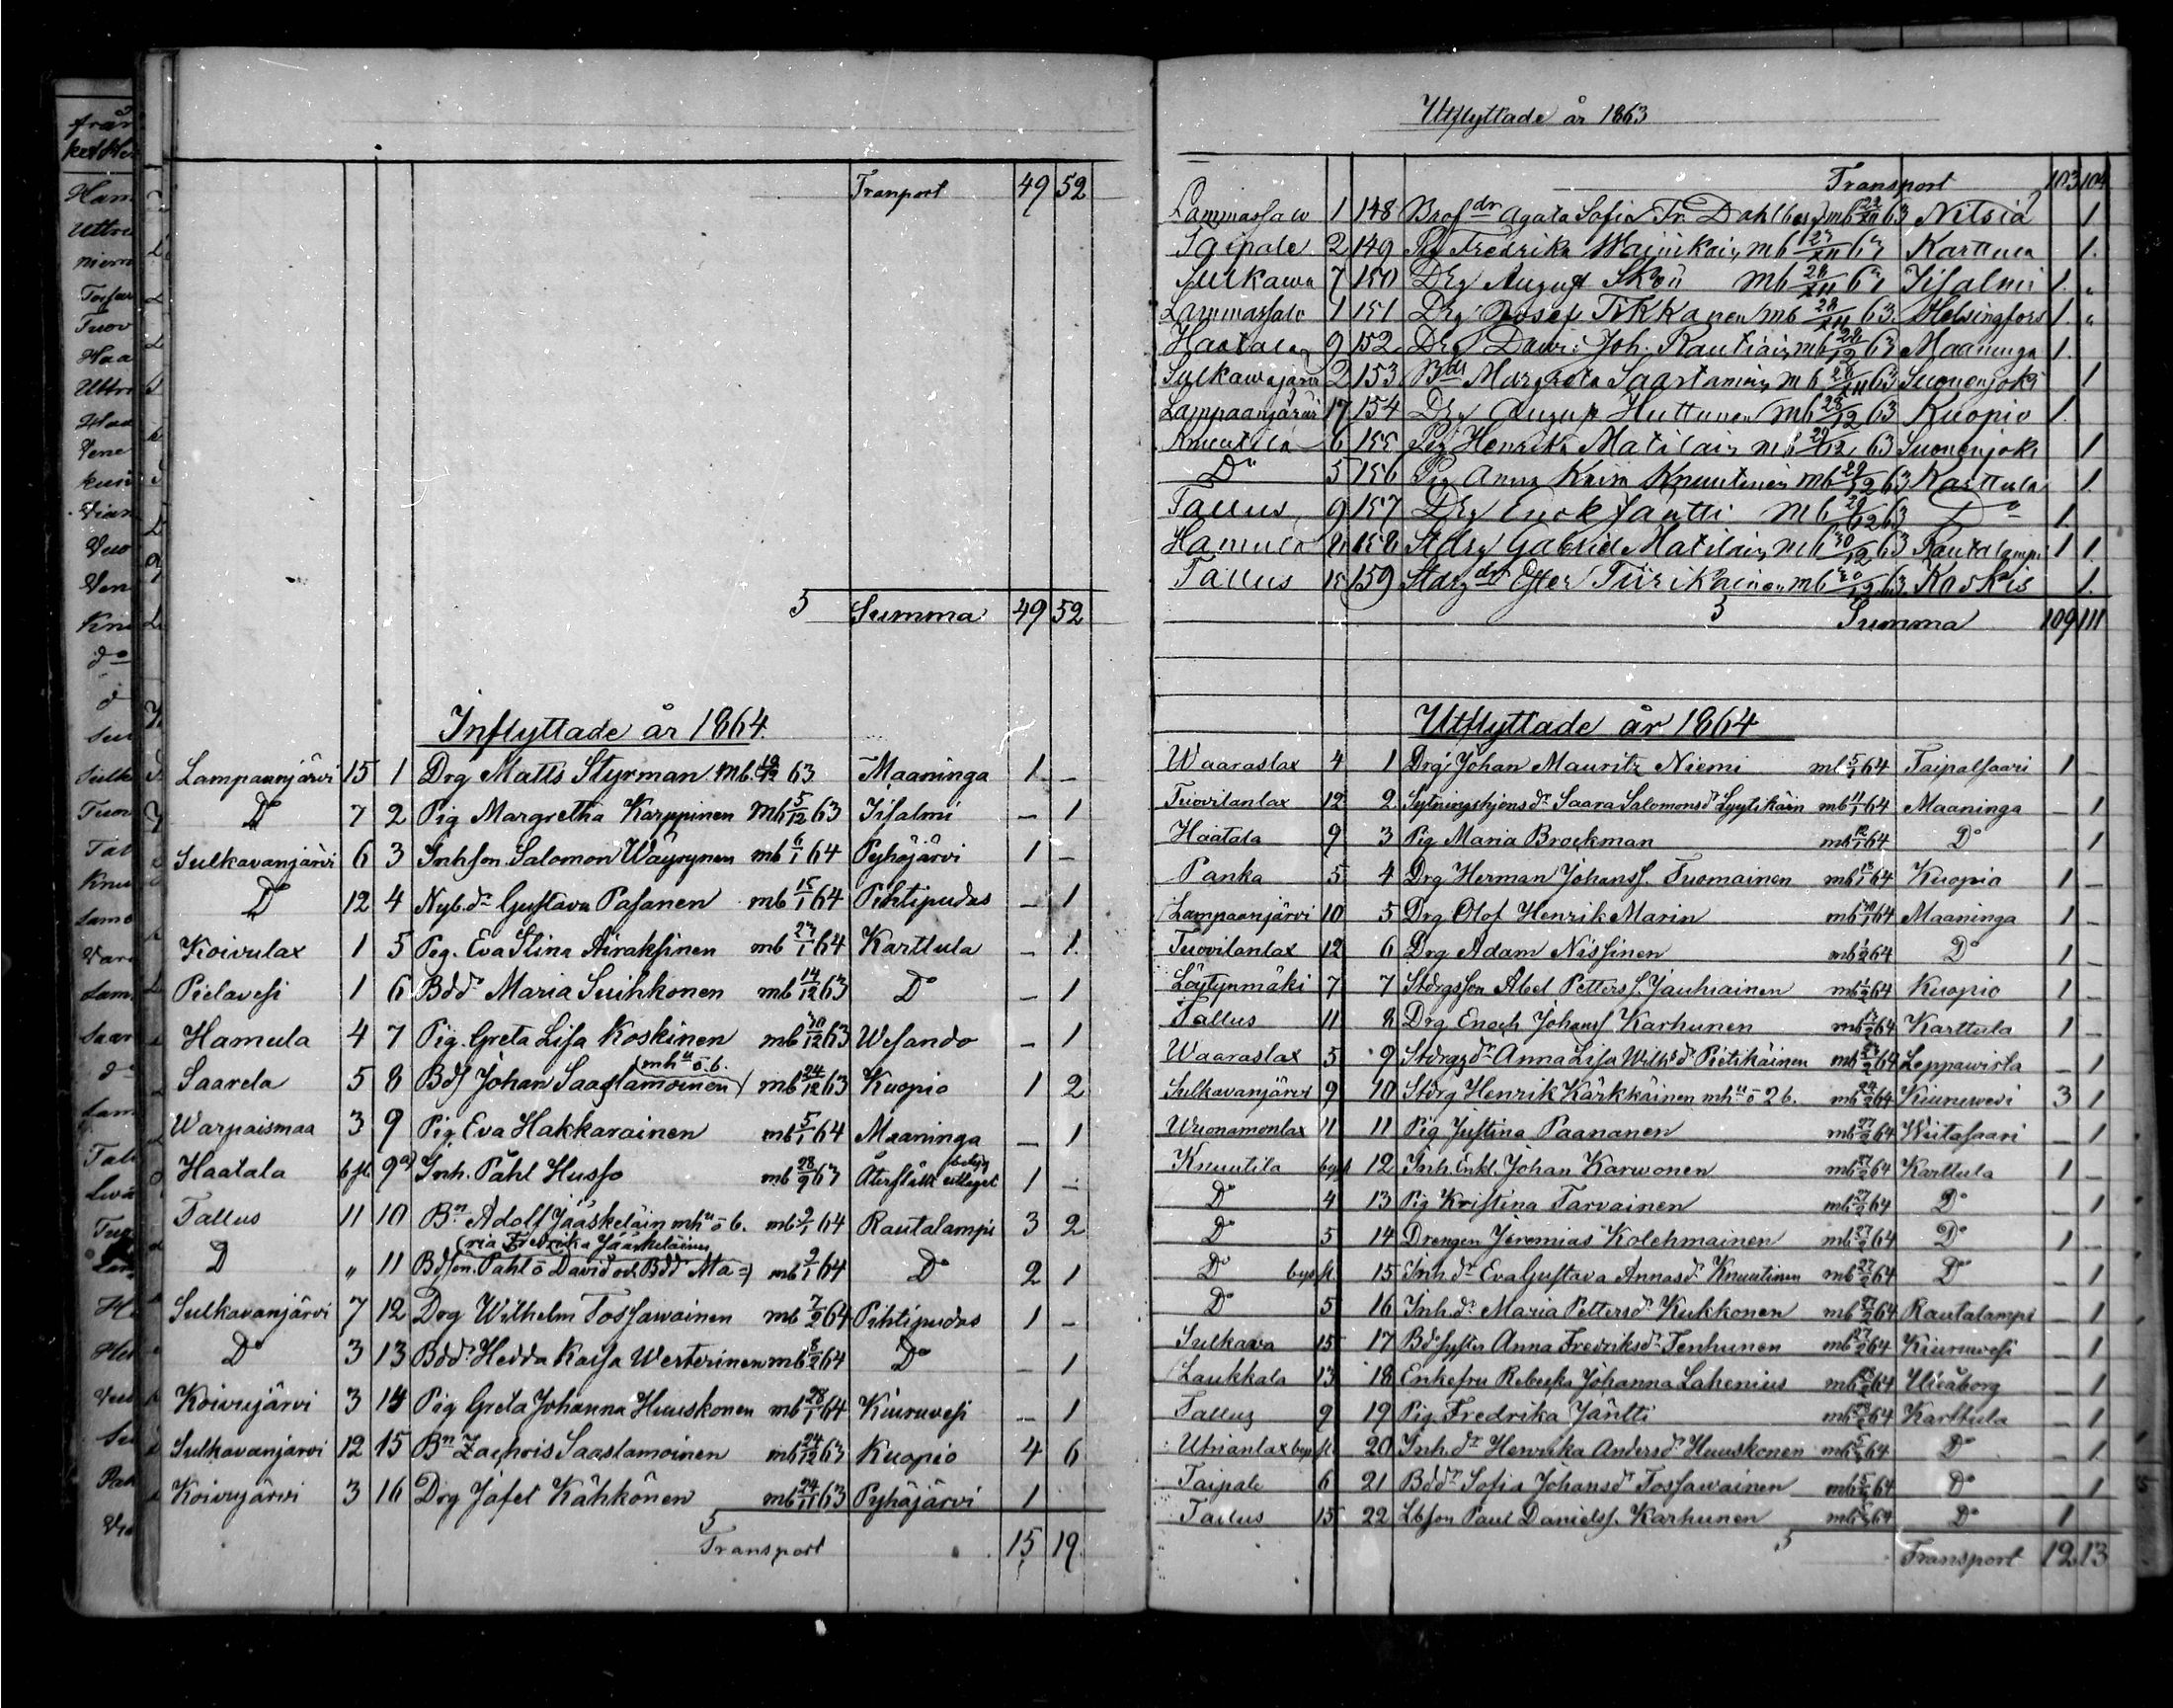 Tranport 49 52
5 Summa 49 52
Inflyttade år 1864.
Lampaanjärvi 15 1 Drg Matts Styrman mb. 19/12 63 Maaninga 1 –
Do 7 2 Pig Margretha Karppinen mb 5/12 63 Iisalmi – 1
Sulkavanjärvi 6 3 Inhson Salomon Wäyrynen mb 6/1 64 Pyhäjärvi 1 –
Do 12 4 Nyb.dr Gustava Pasanen mb 15/1 64 Pihtipudas – 1
Koivulax 1 5 Pig. Eva Stina Airaksinen mb 27/1 64 Karttula – 1.
Pielavesi 1 6 Bddr Maria Suihkonen mb 14/12 63 Do – 1
Hamula 4 7 Pig. Greta Lisa Koskinen mb 30/12 63 Wesando – 1
Saarela 5 8 Bds Johan Saastamoinen (mhu o b.) mb 24/12 63 Kuopio 1 2
Warpaismaa 3 9 Pig Eva Hakkarainen mb 5/1 64 Maaninga – 1
Haatala 6 9a) Inh. Påhl Husso mb 28/9 63 Återstält uttaget betyg 1 –
Tallus 11 10 Bn Adolf Jääskeläin mhu o b. mb 9/1 64 Rautalampi 3 2
(ria Fredrika Jääskeläinen
D " 11 Bdsön. Påhl o David och Bddr Ma=) mb 9/1 64 Do 2 1
Sulkavanjärvi 7 12 Drg Wilhelm Tossawainen mb 7/2 64 Pihtipudas 1 –
Do 3 13 Bddr Hedda Kaisa Westerinen mb 8/2 64 Do – 1
Koivujärvi 3 14 Pig Greta Johanna Huuskonen mb 28/1 64 Kiuruvesi – 1
Sulkavanjärvi 12 15 Bn Zachris Saastamoinen mb 24/12 63 Kuopio 4 6
Koivujärvi 3 16 Drg Jafet Kähkönen mb 24/11 63 Pyhäjärvi 1
5 Transport 15 19
Utflyttade år 1863
Transport 103 104
Lammassalo 1 148 Agata Sofia Dahlberg mb 63 Nilsiä 1
Taipale 2 149 Fredrika mb 63 Karttula 1.
Sulkawa 7 150 Drg August mb 63 Iisalmi 1. "
Lammassalo 1 151 Drg Josef Tikkanen mb 28/XII 63 Helsingfors 1. "
Haatala 9 152 Drg Dawi: Joh. Rautiain mb 28/12 63 Maaninga 1.
Sulkawajärvi 2 153 Margreta Saastamoin mb 63 Suonenjoki 1
Lampaanjärvi 17 154 Drg August Huttunen mb 28/12 63 Kuopio 1.
Knuutila 6 155 Pig Henrika Matilain mb 29/12 63 Suonenjoki 1
Do 5 156 Pig Anna Knuutinen mb 29/12 63 Karttula 1.
Tallus 9 157 Drg Enok Jäntti mb 29/12 63 Do 1.
Hamula 158 Stdrg Gabriel Matilain mb 30/12 63 Rautalampi 1 1.
Tallus 15 159 Stdrgdr Ester mb 63 1.
5 Summa 109 111
Utflyttade år 1864
Waaraslax 4 1 Drg. Johan Mauritz Niemi mb 5/1 64 Taipalsaari 1 –
Tuovilanlax 12 2 Sytningshjons dr Saara Salomonsdr Lyytikäin mb 11/1 64 Maaninga – 1
Haatala 9 3 Pig Maria Brockman mb 12/1 64 Do – 1
Panka 5 4 Drg Herman Johanss. Tuomainen mb 13/1 64 Kuopio 1 –
Lampaanjärvi 10 5 Drg Olof Henrik Marin mb 64 Maaninga 1 –
Tuovilanlax 12 6 Drg Adam Nissinen mb 64 Do 1 –
Löytynmäki 7 7 Stdrgsson Abel Petters s. Jauhiainen mb 64 Kuopio 1 –
Tallus 11 8 Drg Enoch Johanss Karhunen mb 64 Karttula 1 –
Waaraslax 5 9 Stdrgsdr Anna Lisa Wilhsdr Pietikäinen mb 64 Leppawirta – 1
Sulkavanjärvi 9 10 Stdrg Henrik Kärkkäinen mhu o 2 b. mb 24/2 64 Kiuruwesi 3 1
Wuonamonlax 11 11 Pig Justina Paananen mb 27/2 64 Wiitasaari – 1
Knuutila byst 12 Inh. Enkl. Johan Karwonen mb 27/2 64 Karttula 1 –
Do 4 13 Pig Kristina Tarvainen mb 27/2 64 Do – 1
Do 5 14 Drengen Jeremias Kolehmainen mb 27/2 64 Do 1 –
Do byst 15 Inh. dr Eva Gustava Annas dr Knuutinen mb 27/2 64 Do – 1
Do 5 16 Inh. dr Maria Pettersdr Kukkonen mb 27/2 64 Rautalampi – 1
Sulkava 15 17 Bdesyster Anna Fredriksdr Tenhunen mb 27/2 64 Kiuruvesi – 1
Laukkala 13 18 Enkefru Rebecka Johanna Lahenius mb 64 Uleåborg – 1
Tallus 9 19 Pig. Fredrika Jäntti mb 64 Karttula – 1
Utrianlax byst 20 Inh. dr Henrika Andersdr Huuskonen mb 64 Do – 1
Taipale 6 21 Bddr Sofia Johansdr Tossawainen mb 64 Do – 1
Tallus 15 22 Lbson Paul Daniels s. Karhunen mb 64 Do 1
5 Transport 12 13